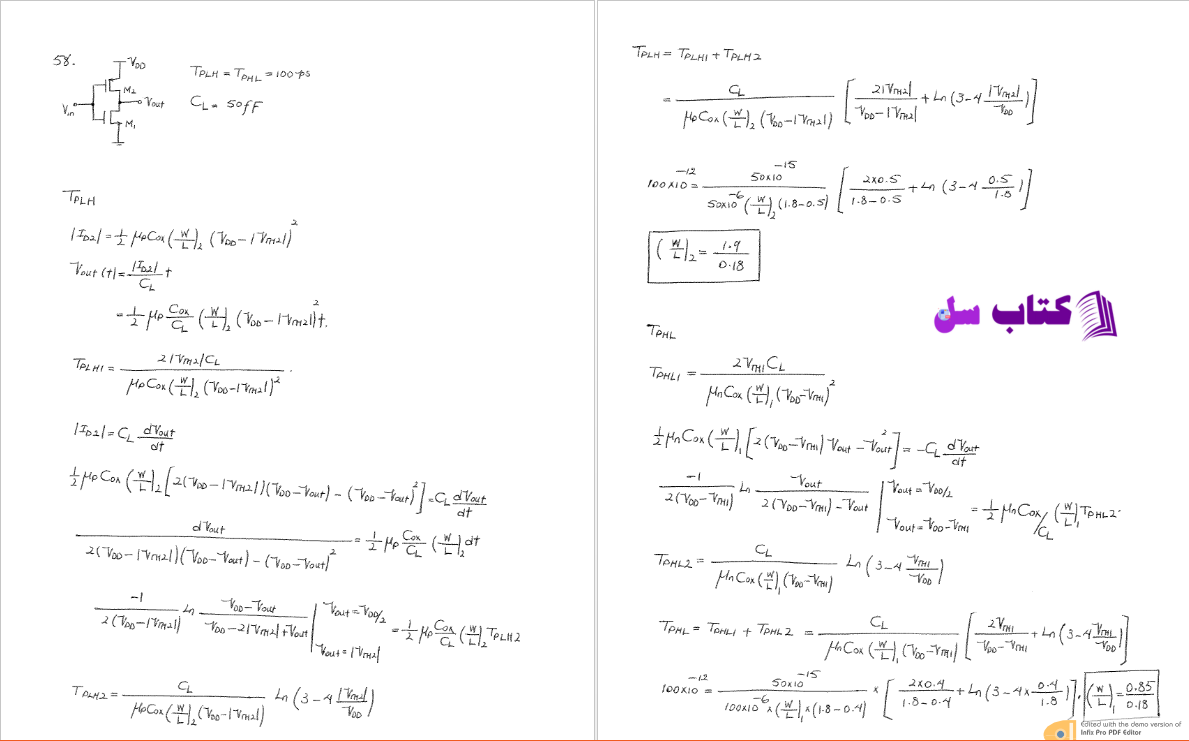 58.
V_DD
M2
V_in
V_out
M1
T_PLH = T_PHL = 100 ps
C_L = 50fF
T_PLH
|I_D2| = 1/2 μp Cox (W/L)_2 (V_DD - |V_TH2|)^2
V_out (t) = |I_D2|/C_L t
= 1/2 μp Cox/C_L (W/L)_2 (V_DD - |V_TH2|)^2 t.
T_PLH1 = 2|V_TH2|C_L / μp Cox (W/L)_2 (V_DD - |V_TH2|)^2 .
|I_D2| = C_L dV_out/dt
1/2 μp Cox (W/L)_2 [2(V_DD - |V_TH2|)(V_DD - V_out) - (V_DD - V_out)^2] = C_L dV_out/dt
dV_out / 2(V_DD - |V_TH2|)(V_DD - V_out) - (V_DD - V_out)^2 = 1/2 μp Cox/C_L (W/L)_2 dt
-1 / 2(V_DD - |V_TH2|) Ln V_DD - V_out / V_DD - 2|V_TH2| + V_out | V_out = V_DD/2 V_out = |V_TH2| = 1/2 μp Cox/C_L (W/L)_2 T_PLH2
T_PLH2 = C_L / μp Cox (W/L)_2 (V_DD - |V_TH2|) Ln (3 - 4 |V_TH2|/V_DD)
T_PLH = T_PLH1 + T_PLH2
= C_L / μp Cox (W/L)_2 (V_DD - |V_TH2|) [2|V_TH2| / V_DD - |V_TH2| + Ln (3 - 4 |V_TH2|/V_DD)]
100x10^-12 = 50x10^-15 / 50x10^-6 (W/L)_2 (1.8 - 0.5) [2x0.5 / 1.8 - 0.5 + Ln (3 - 4 0.5/1.8)]
(W/L)_2 = 1.9/0.18
کتاب سل
T_PHL
T_PHL1 = 2V_TH1 C_L / μn Cox (W/L)_1 (V_DD - V_TH1)^2
1/2 μn Cox (W/L)_1 [2(V_DD - V_TH1) V_out - V_out^2] = -C_L dV_out/dt
-1 / 2(V_DD - V_TH1) Ln V_out / 2(V_DD - V_TH1) - V_out | V_out = V_DD/2 V_out = V_DD - V_TH1 = 1/2 μn Cox/C_L (W/L)_1 T_PHL2.
T_PHL2 = C_L / μn Cox (W/L)_1 (V_DD - V_TH1) Ln (3 - 4 V_TH1/V_DD)
T_PHL = T_PHL1 + T_PHL2 = C_L / μn Cox (W/L)_1 (V_DD - V_TH1) [2V_TH1 / V_DD - V_TH1 + Ln (3 - 4 V_TH1/V_DD)]
100x10^-12 = 50x10^-15 / 100x10^-6 x (W/L)_1 x (1.8 - 0.4) x [2x0.4 / 1.8 - 0.4 + Ln (3 - 4 x 0.4/1.8)], (W/L)_1 = 0.85/0.18
Edited with the demo version of
Infix Pro PDF Editor